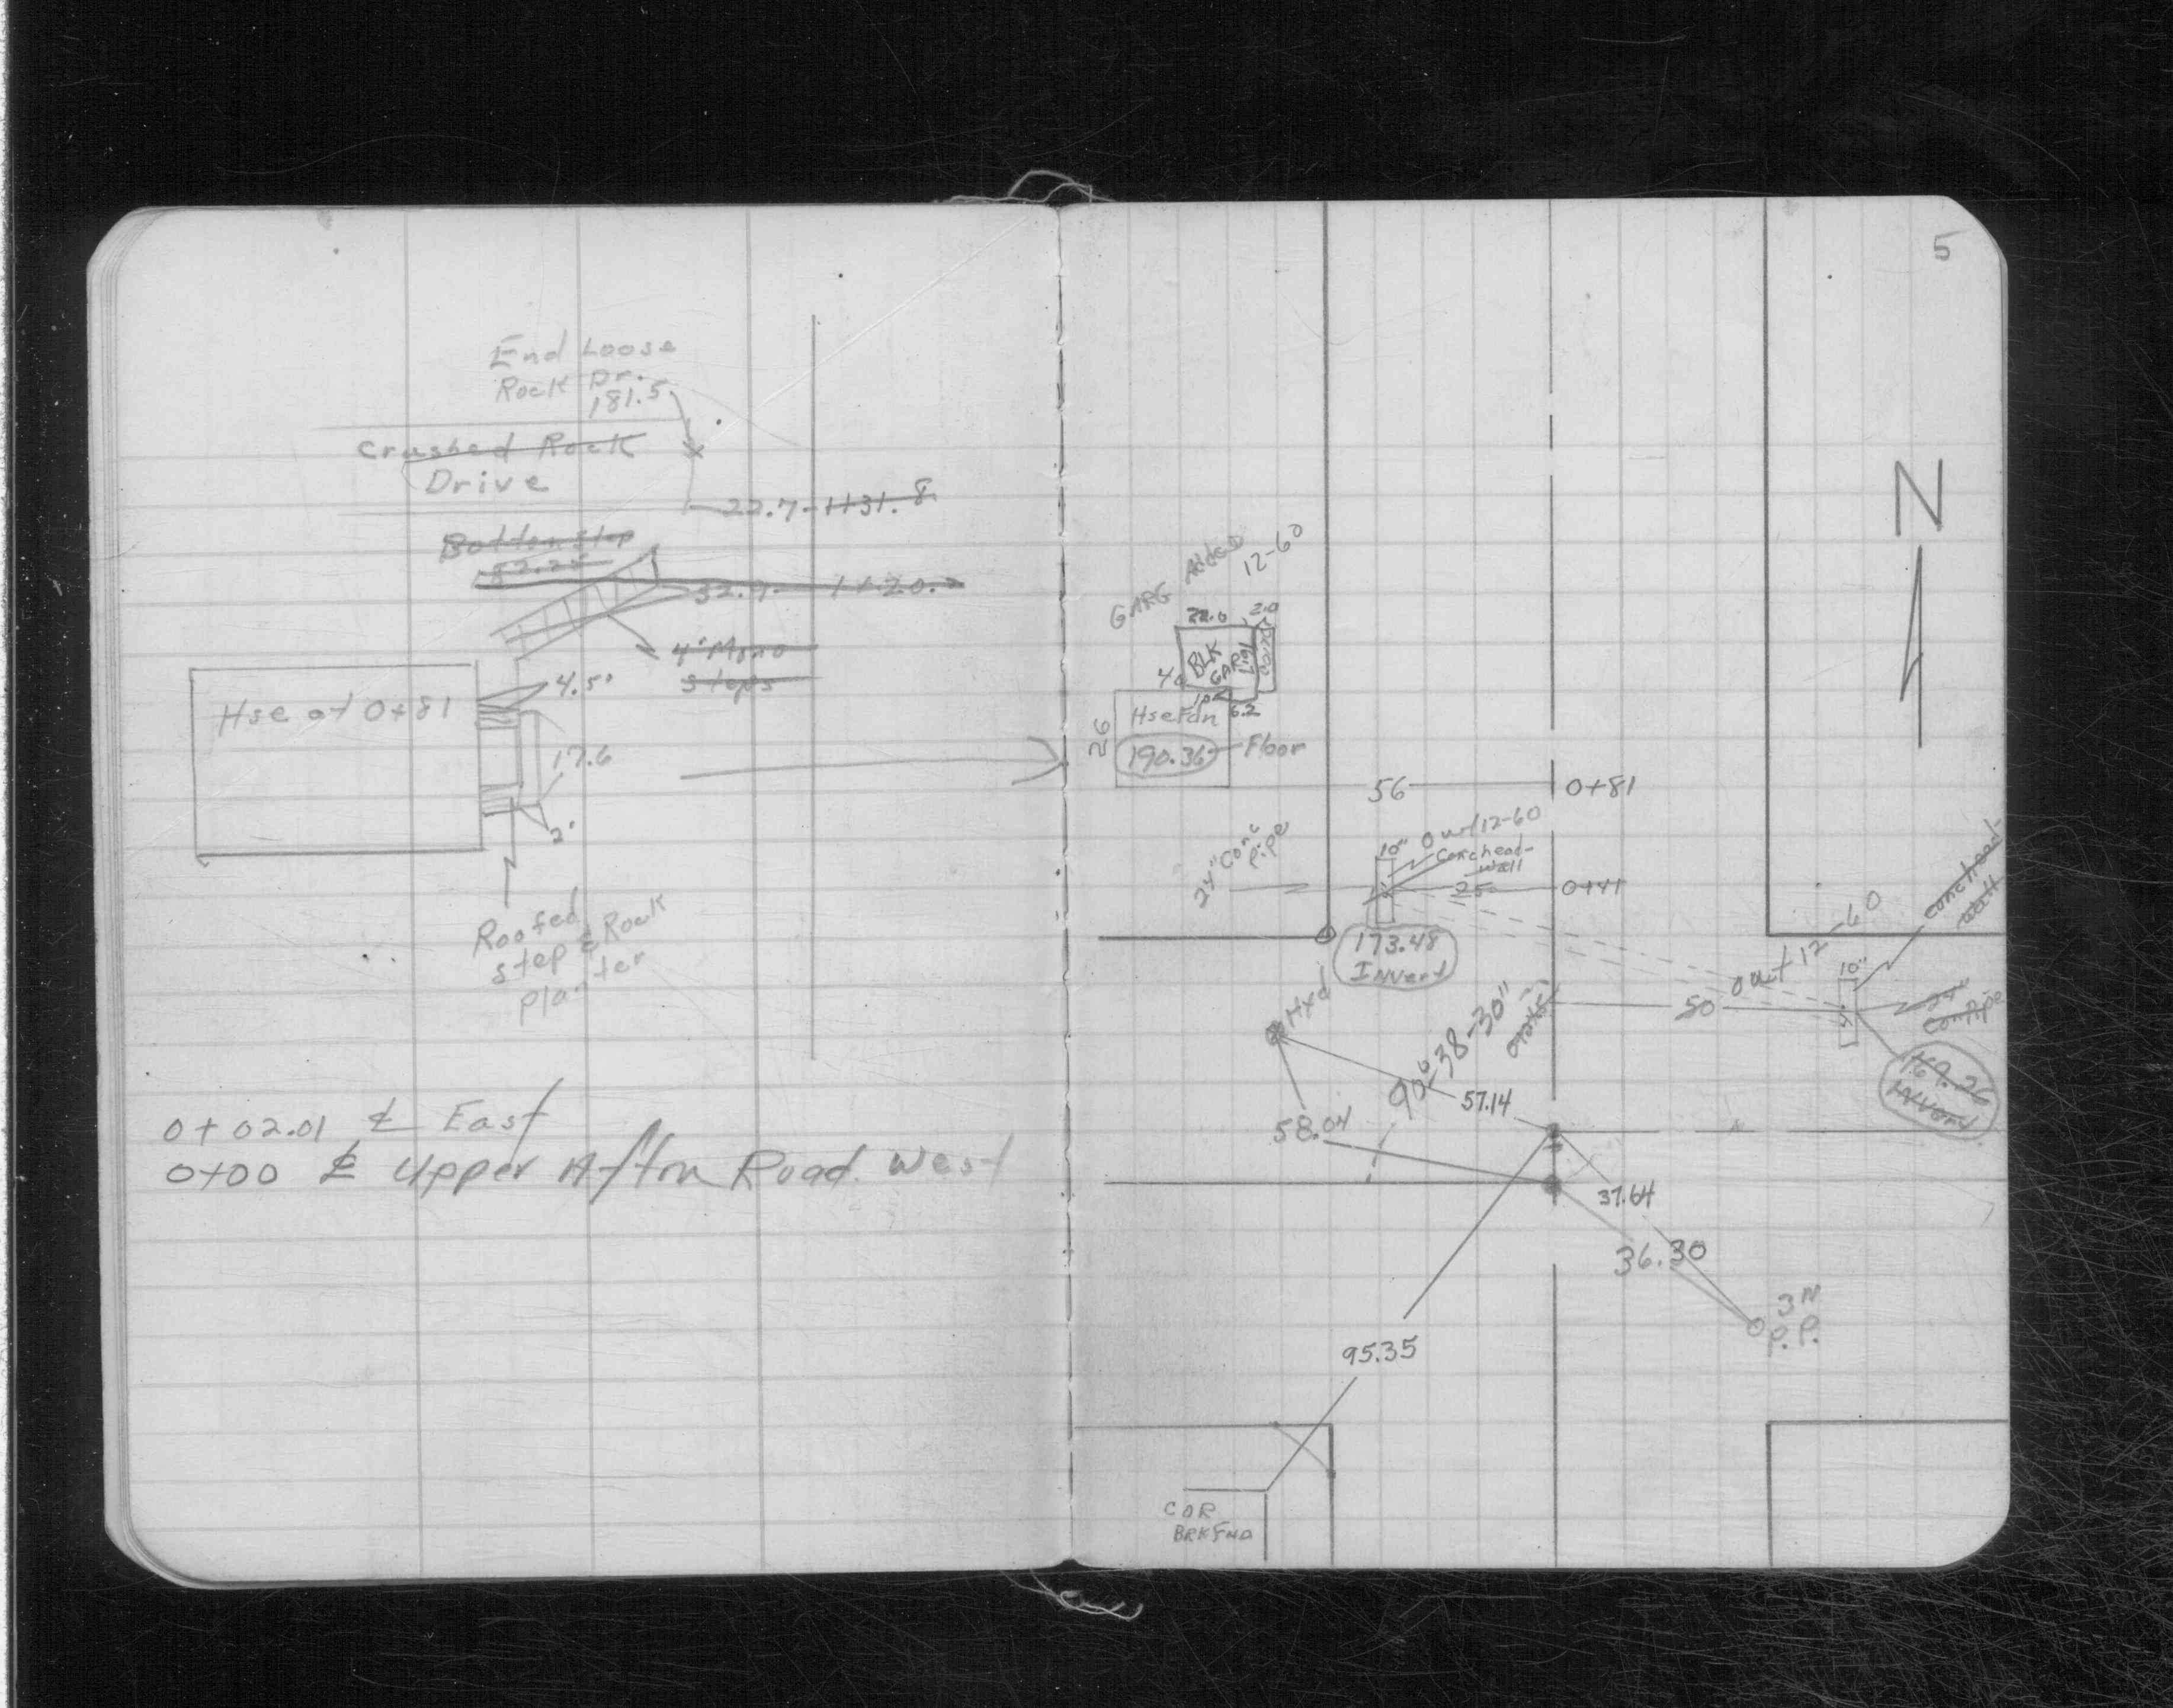 End Loose
Rock Dr.
181.5
Crushed Rock
Drive
22.7 - 1+31.8
Bottom Step
82.25
32.9 - 1+20.2
4' Mono
Steps
4.5'
Hse at 0+81
17.6
2'
Roofed
step & Rock
planter
0+02.01 ℄ East
0+00 ℄ Upper Afton Road West
5
N
GARG Added
12-60
22.0
2.0
BLK
GAR
40
6.2
Hse Fdn
26
190.36 Floor
56
0+81
24" Conc
Pipe
10"
Out 12-60
Conc head-
wall
25
0+41
173.48
Invert
Conc head-
wall
Out 12-60
10"
50
24"
Con Pipe
169.26
Invert
Hyd
90°-38-30"
57.14
58.04
37.64
36.30
3N
P.P.
95.35
COR
BRK FND